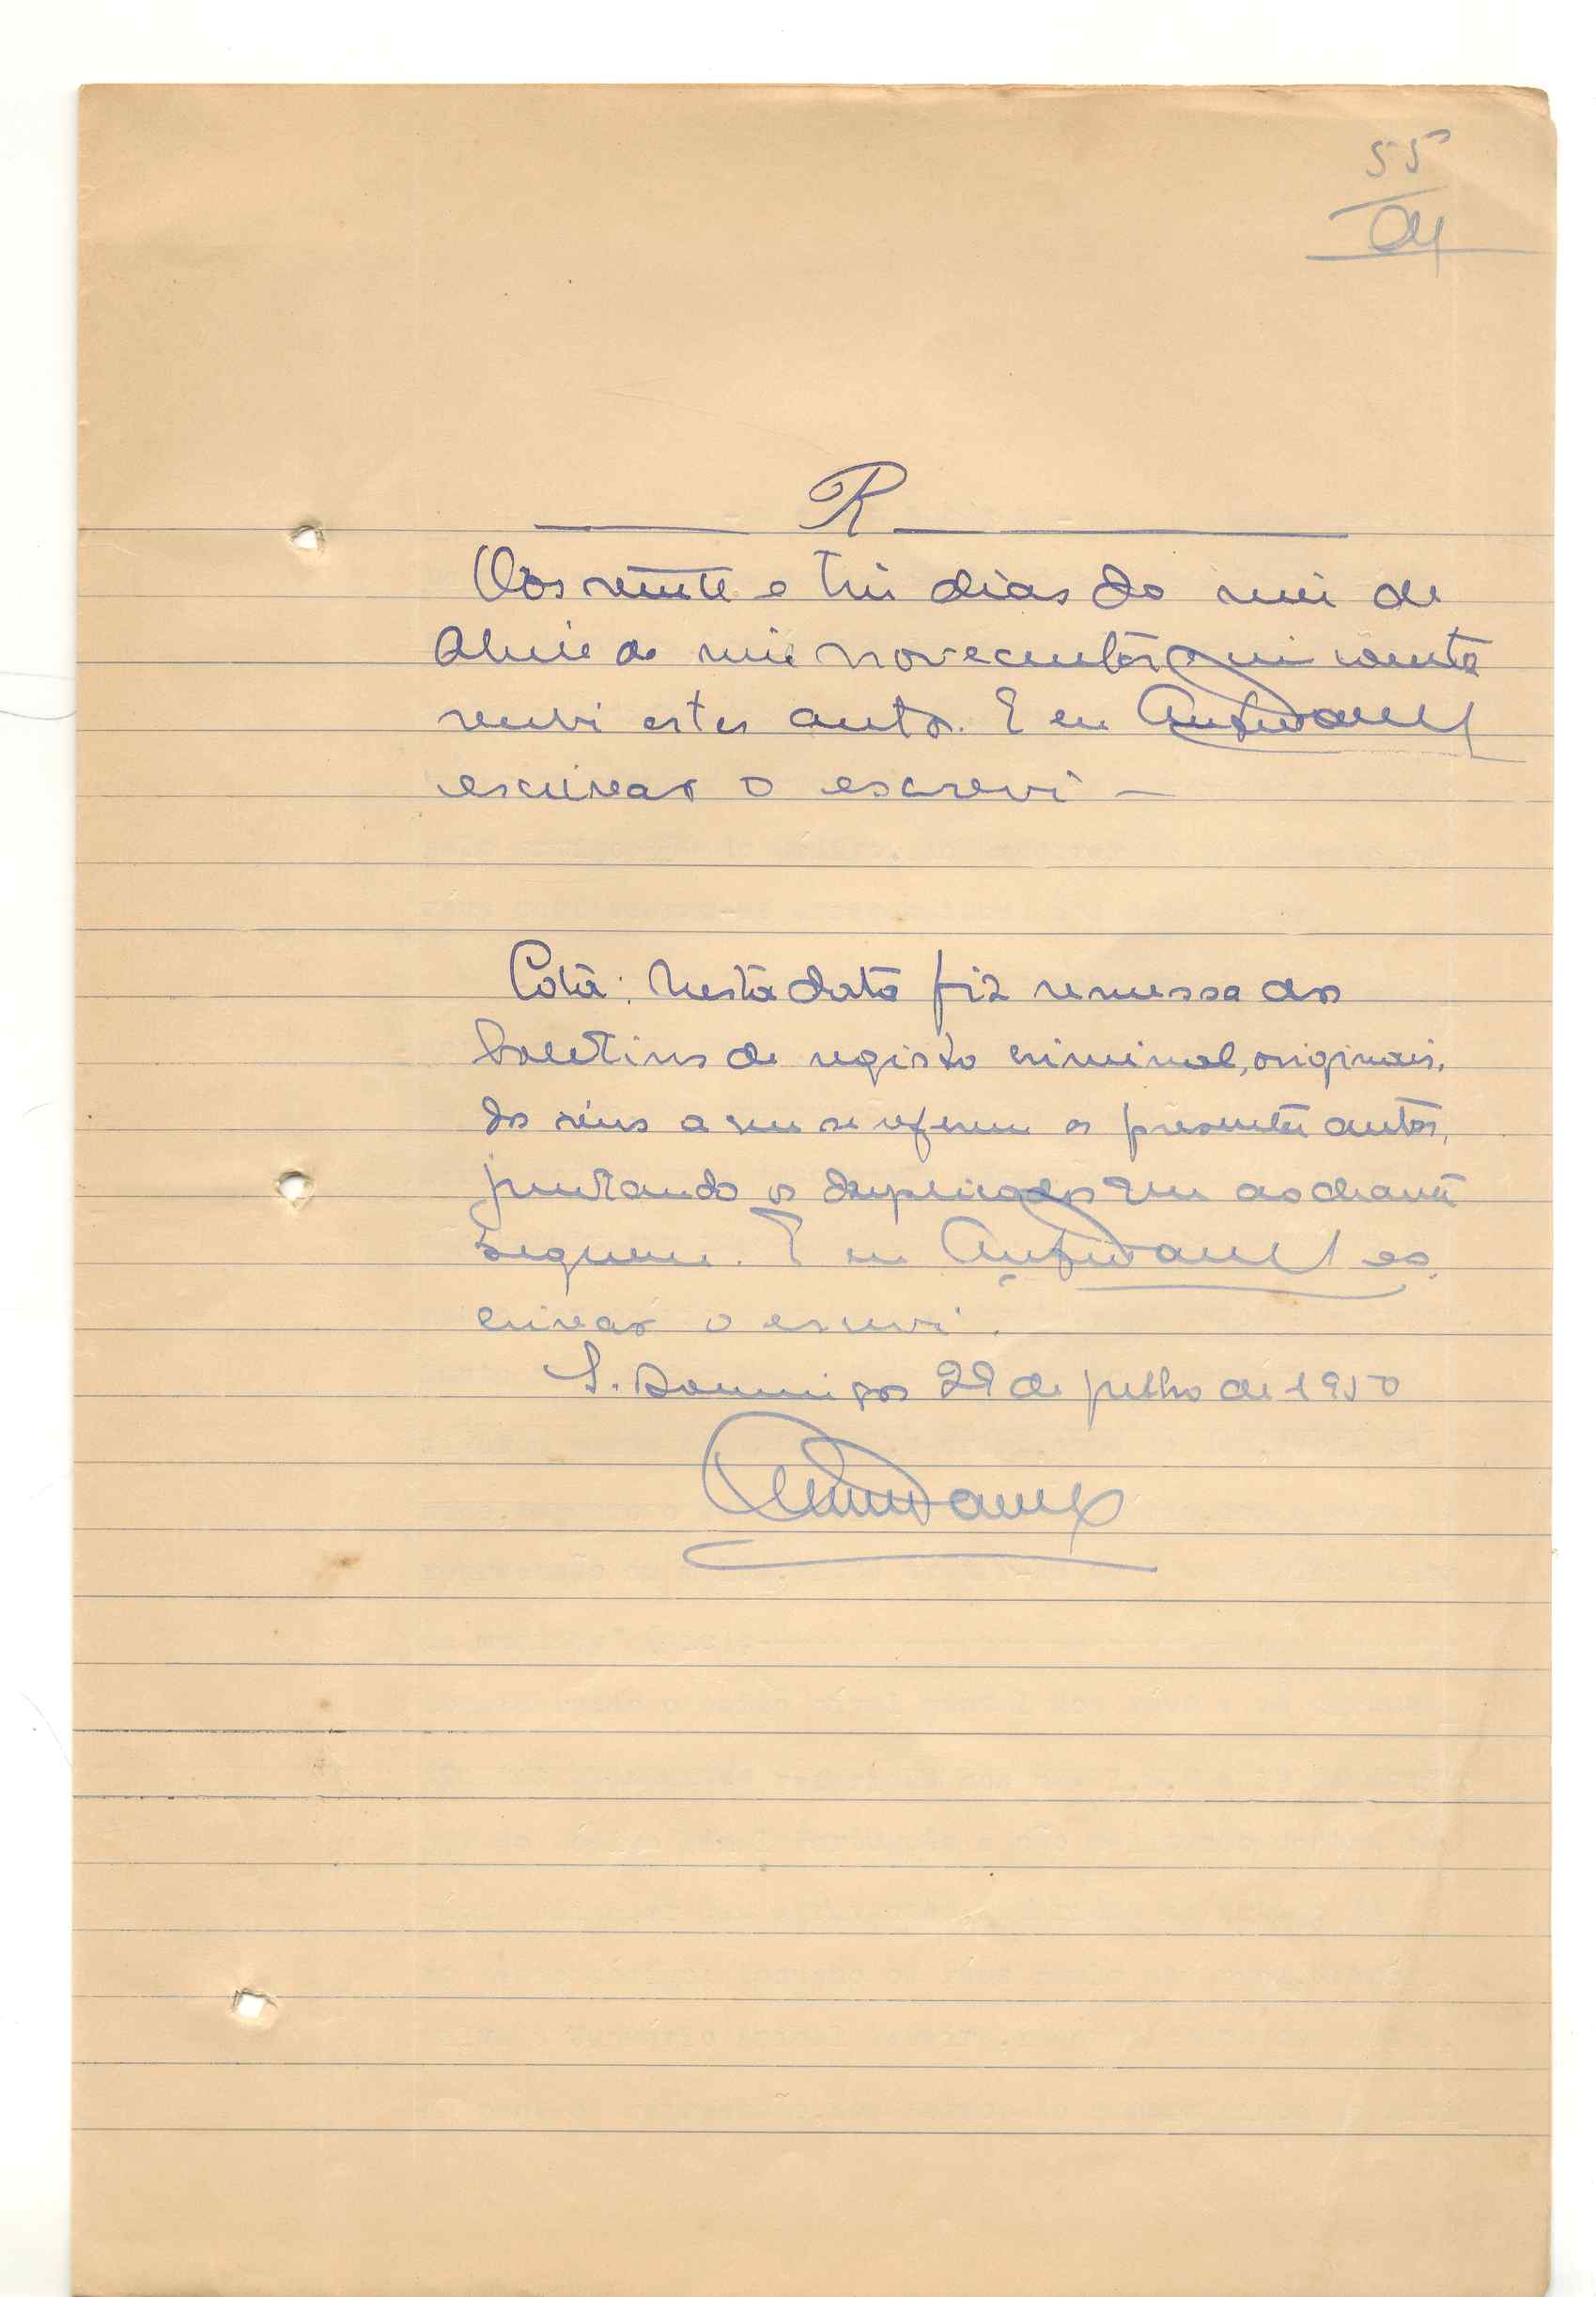 55
R
Aos vinte e três dias do mês de
Abril de mil novecentos e cincoenta
recebi estes autos. E eu
escrivão o escrevi —
Cota: Nesta data fiz remessa dos
boletins de registo criminal, originais,
dos réus a que se referem os presentes autos,
juntando os duplicados que ao deante
seguem. E eu es
crivão o escrevi.
S. Domingos 29 de julho de 1950